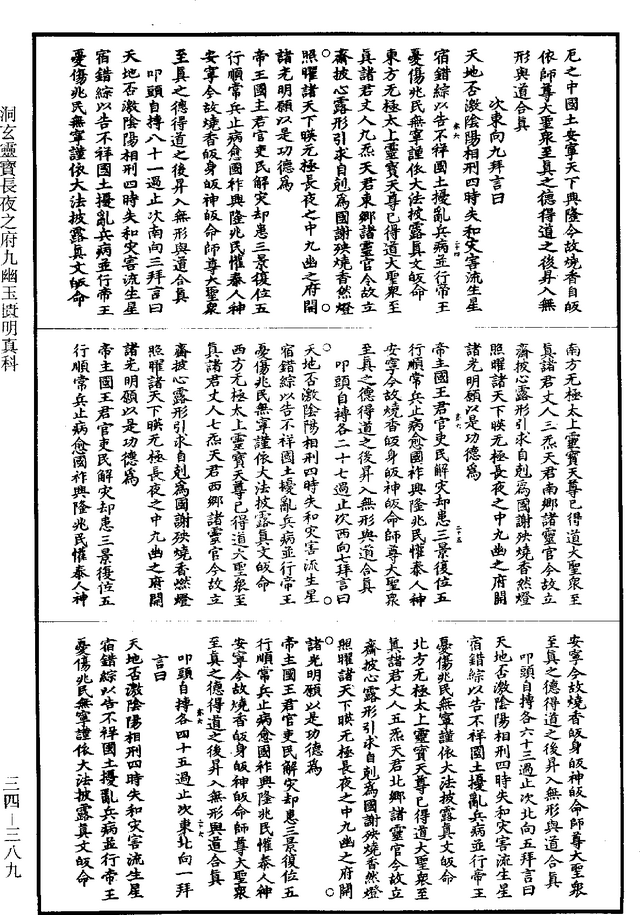 厄之中國土安寧天下興隆今故燒香自皈
依師尊大聖衆至真之德得道之後昇入無
形與道合真
次東向九拜言曰
天地否激陰陽相刑四時失和灾害流生星
宿錯綜以告不祥國土擾亂兵病並行帝王
憂傷兆民無寧謹依大法披露真文皈命
東方无極太上靈寶天尊已得道大聖衆至
真諸君丈人九炁天君東鄉諸靈官今故立
齋披心露形引求自剋為國謝殃燒香然燈
照曜諸天下映无極長夜之中九幽之府開
諸光明願以是功德為
帝王國主君官吏民解灾却患三景復位五
行順常兵止病愈國祚興隆兆民懽泰人神
安寧今故燒香皈身皈神皈命師尊大聖衆
至真之德得道之後昇入無形與道合真
叩頭自摶八十一過止次南向三拜言曰
天地否激陰陽相刑四時失和灾害流生星
宿錯綜以告不祥國土擾亂兵病並行帝王
憂傷兆民無寧謹依大法披露真文皈命
南方无極太上靈寶天尊已得道大聖衆至
真諸君丈人三炁天君南鄉諸靈官今故立
齋披心露形引求自剋為國謝殃燒香然燈
照曜諸天下映无極長夜之中九幽之府開
諸光明願以是功德為
帝主國王君官吏民解灾却患三景復位五
行順常兵止病愈國祚興隆兆民懽泰人神
安寧今故燒香皈身皈神皈命師尊大聖衆
至真之德得道之後昇入無形與道合真
叩頭自摶各二十七過止次西向七拜言曰
天地否激陰陽相刑四時失和灾害流生星
宿錯綜以告不祥國土擾亂兵病並行帝王
憂傷兆民無寧謹依大法披露真文皈命
西方无極太上靈寶天尊已得道大聖衆至
真諸君丈人七炁天君西鄉諸靈官今故立
齋披心露形引求自剋為國謝殃燒香燃燈
照曜諸天下映无極長夜之中九幽之府開
諸光明願以是功德為
帝主國王君官吏民解灾却患三景復位五
行順常兵止病愈國祚興隆兆民懽泰人神
安寧今故燒香皈身皈神皈命師尊大聖衆
至真之德得道之後昇入無形與道合真
叩頭自摶各六十三過止次北向五拜言曰
天地否激陰陽相刑四時失和灾害流生星
宿錯綜以告不祥國土擾亂兵病並行帝王
憂傷兆民無寧謹依大法披露真文皈命
北方无極太上靈寶天尊已得道大聖衆至
真諸君丈人五炁天君北鄉諸靈官今故立
齋披心露形引求自剋為國謝殃燒香然燈
照曜諸天下映无極長夜之中九幽之府開
諸光明願以是功德為
帝主國王君官吏民解灾却患三景復位五
行順常兵止病愈國祚興隆兆民懽泰人神
安寧今故燒香皈身皈神皈命師尊大聖衆
至真之德得道之後昇入無形與道合真
叩頭自摶各四十五過止次東北向一拜
言曰
天地否激陰陽相刑四時失和灾害流生星
宿錯綜以告不祥國土擾亂兵病並行帝王
憂傷兆民無寧謹依大法披露真文皈命
洞玄靈寶長夜之府九幽玉匱明真科
三四－三八九